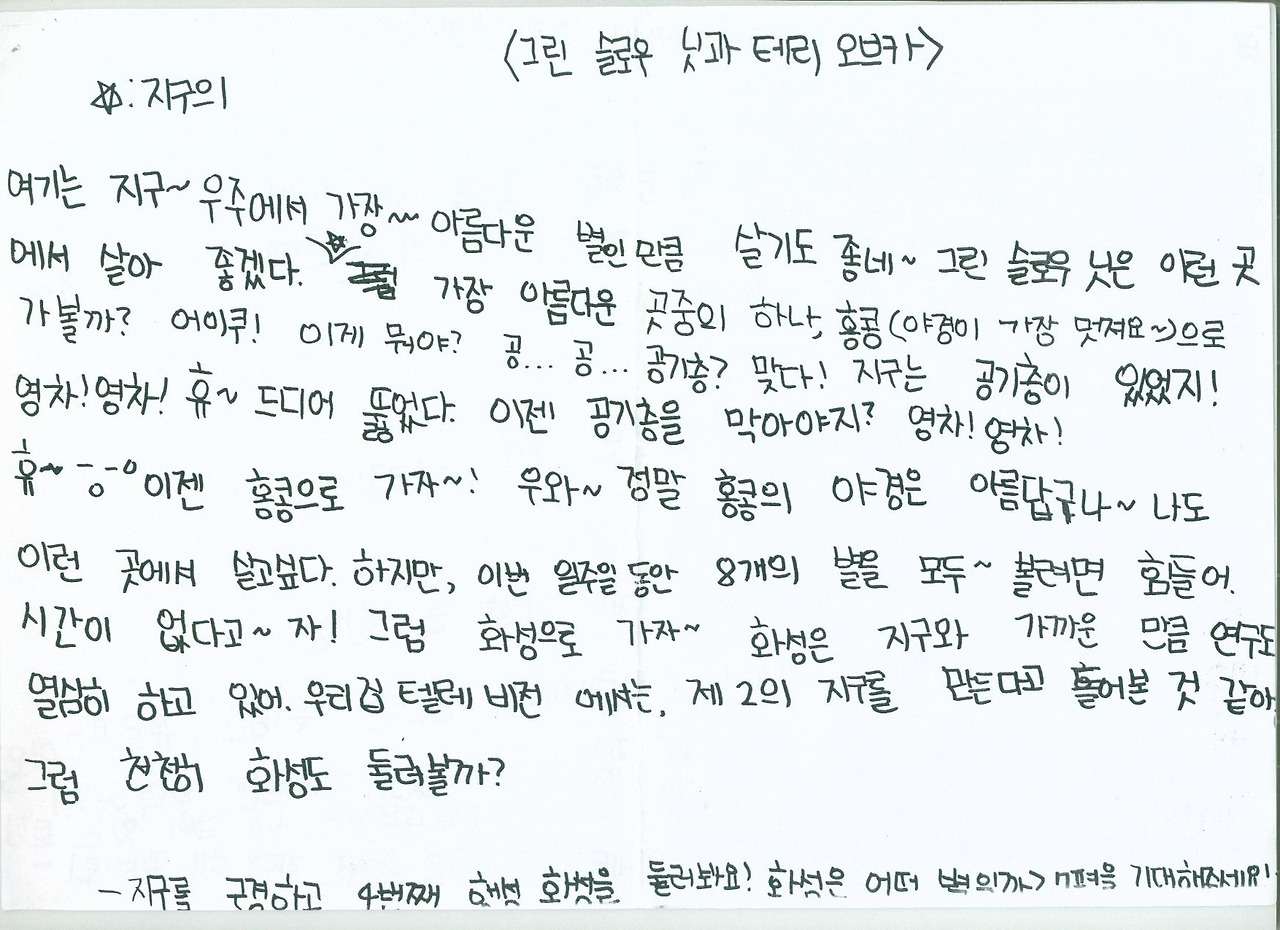 <그린 슬로우 닛과 테리 오브카>
☆: 지구의
여기는 지구~ 우주에서 가장~~ 아름다운 별인 만큼 살기도 좋네~ 그린 슬로우 닛은 이런 곳
에서 살아 좋겠다. ☆ 가장 아름다운 곳중의 하나, 홍콩(야경이 가장 멋져요~)으로
가볼까? 어이쿠! 이게 뭐야? 공... 공... 공기층? 맞다! 지구는 공기층이 있었지!
영차! 영차! 휴~ 드디어 뚫었다. 이젠 공기층을 막아야지? 영차! 영차!
휴~ 이젠 홍콩으로 가자~! 우와~ 정말 홍콩의 야경은 아름답구나~ 나도
이런 곳에서 살고싶다. 하지만, 이번 일주일 동안 8개의 별을 모두~ 볼려면 힘들어.
시간이 없다고~ 자! 그럼 화성으로 가자~ 화성은 지구와 가까운 만큼 연구도
열심히 하고 있어. 우리집 텔레비전 에서는, 제 2의 지구를 만든다고 들어본 것 같아.
그럼 천천히 화성도 둘러볼까?
- 지구를 구경하고 4번째 행성 화성을 둘러봐요! 화성은 어떠 별일까? 7편을 기대해주세요!